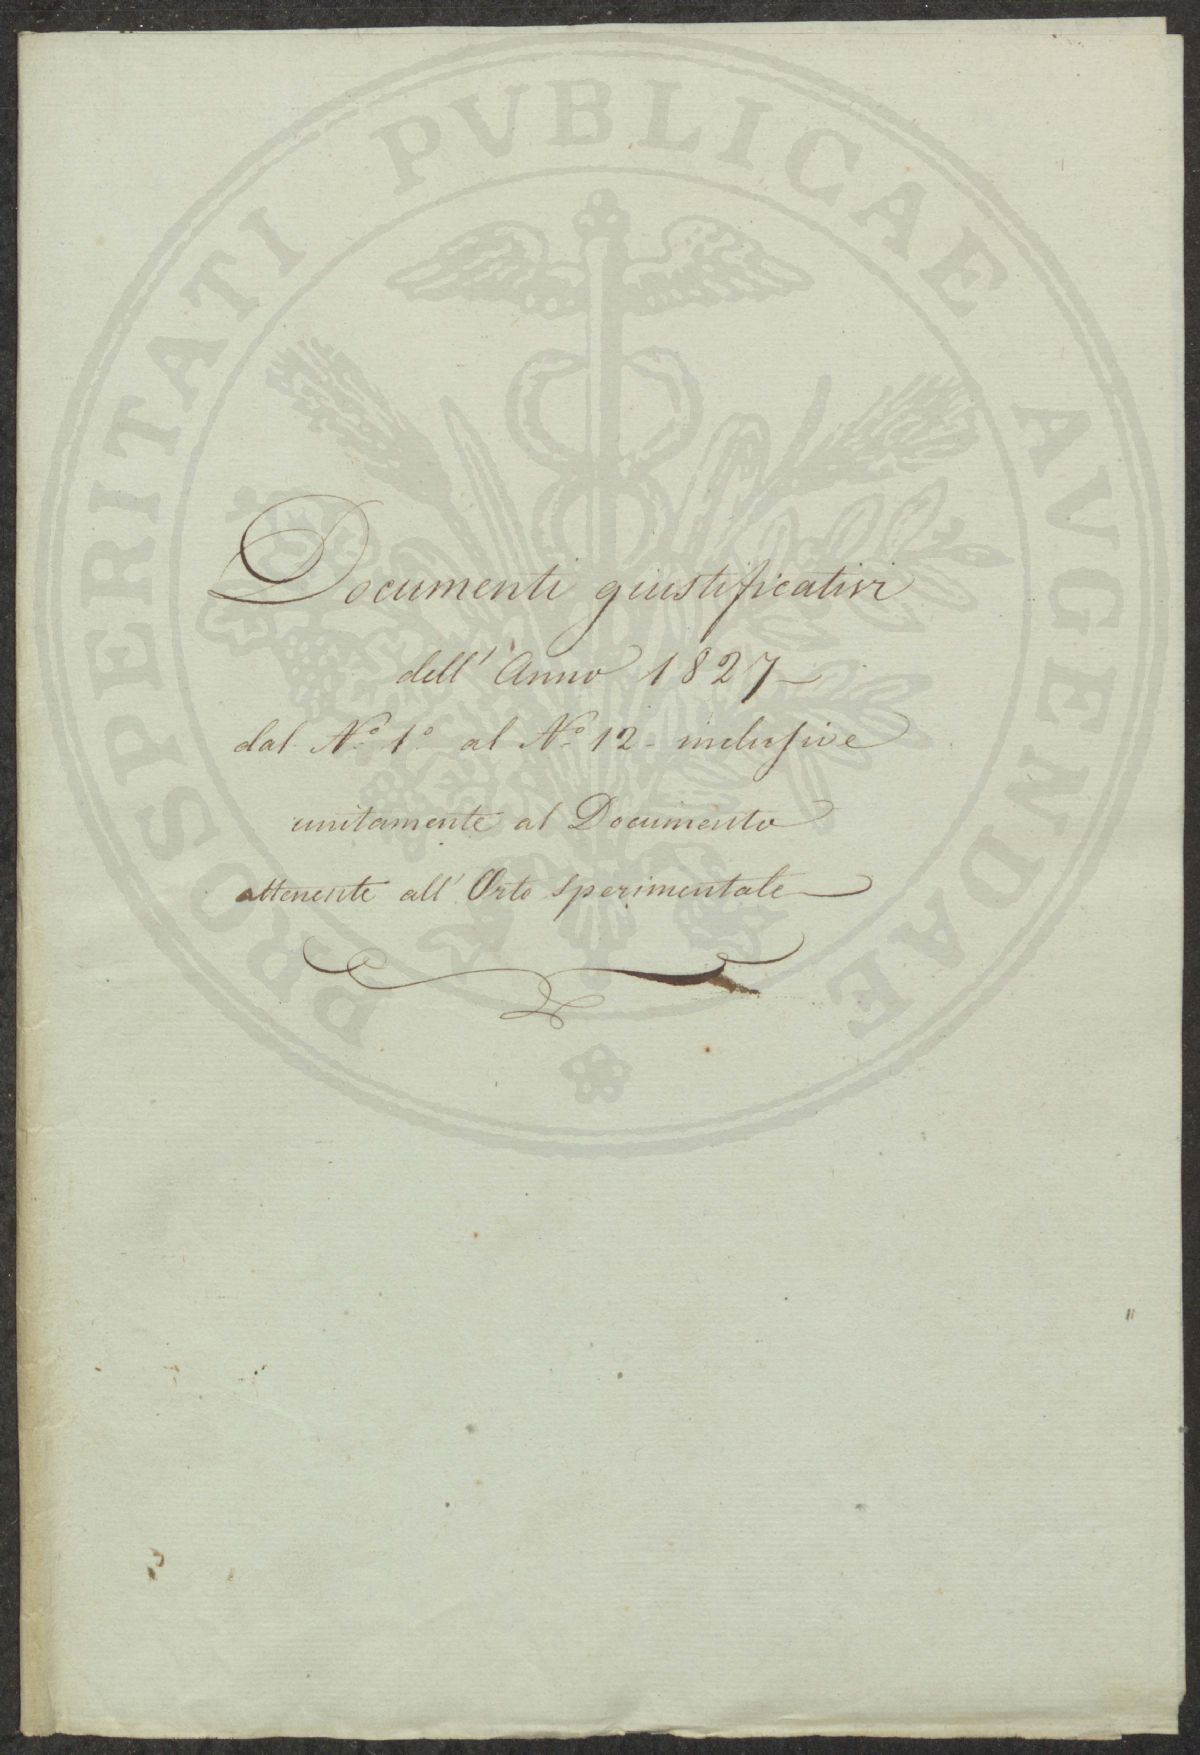 PROSPERITATI PVBLICAE AVGENDAE
Documenti giustificativi
dell' Anno 1827
dal N.º 1º al N.º 12 - inclusive
unitamente al Documento
attenente all' Orto Sperimentale